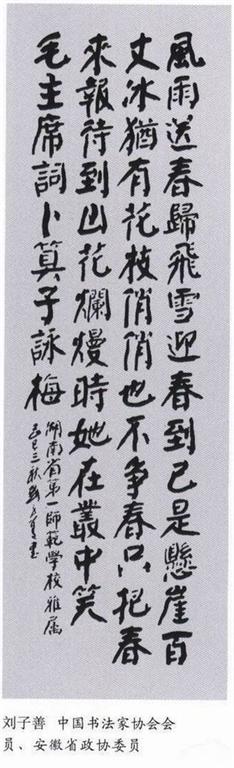 風雨送春歸飛雪迎春到已是懸崖百
丈冰猶有花枝俏俏也不争春只把春
來報待到山花爛熳時她在叢中笑
毛主席詞卜算子詠梅
湖南省第一師範學校雅屬
己巳三秋劉子善書
刘子善 中国书法家协会会
员、安徽省政协委员